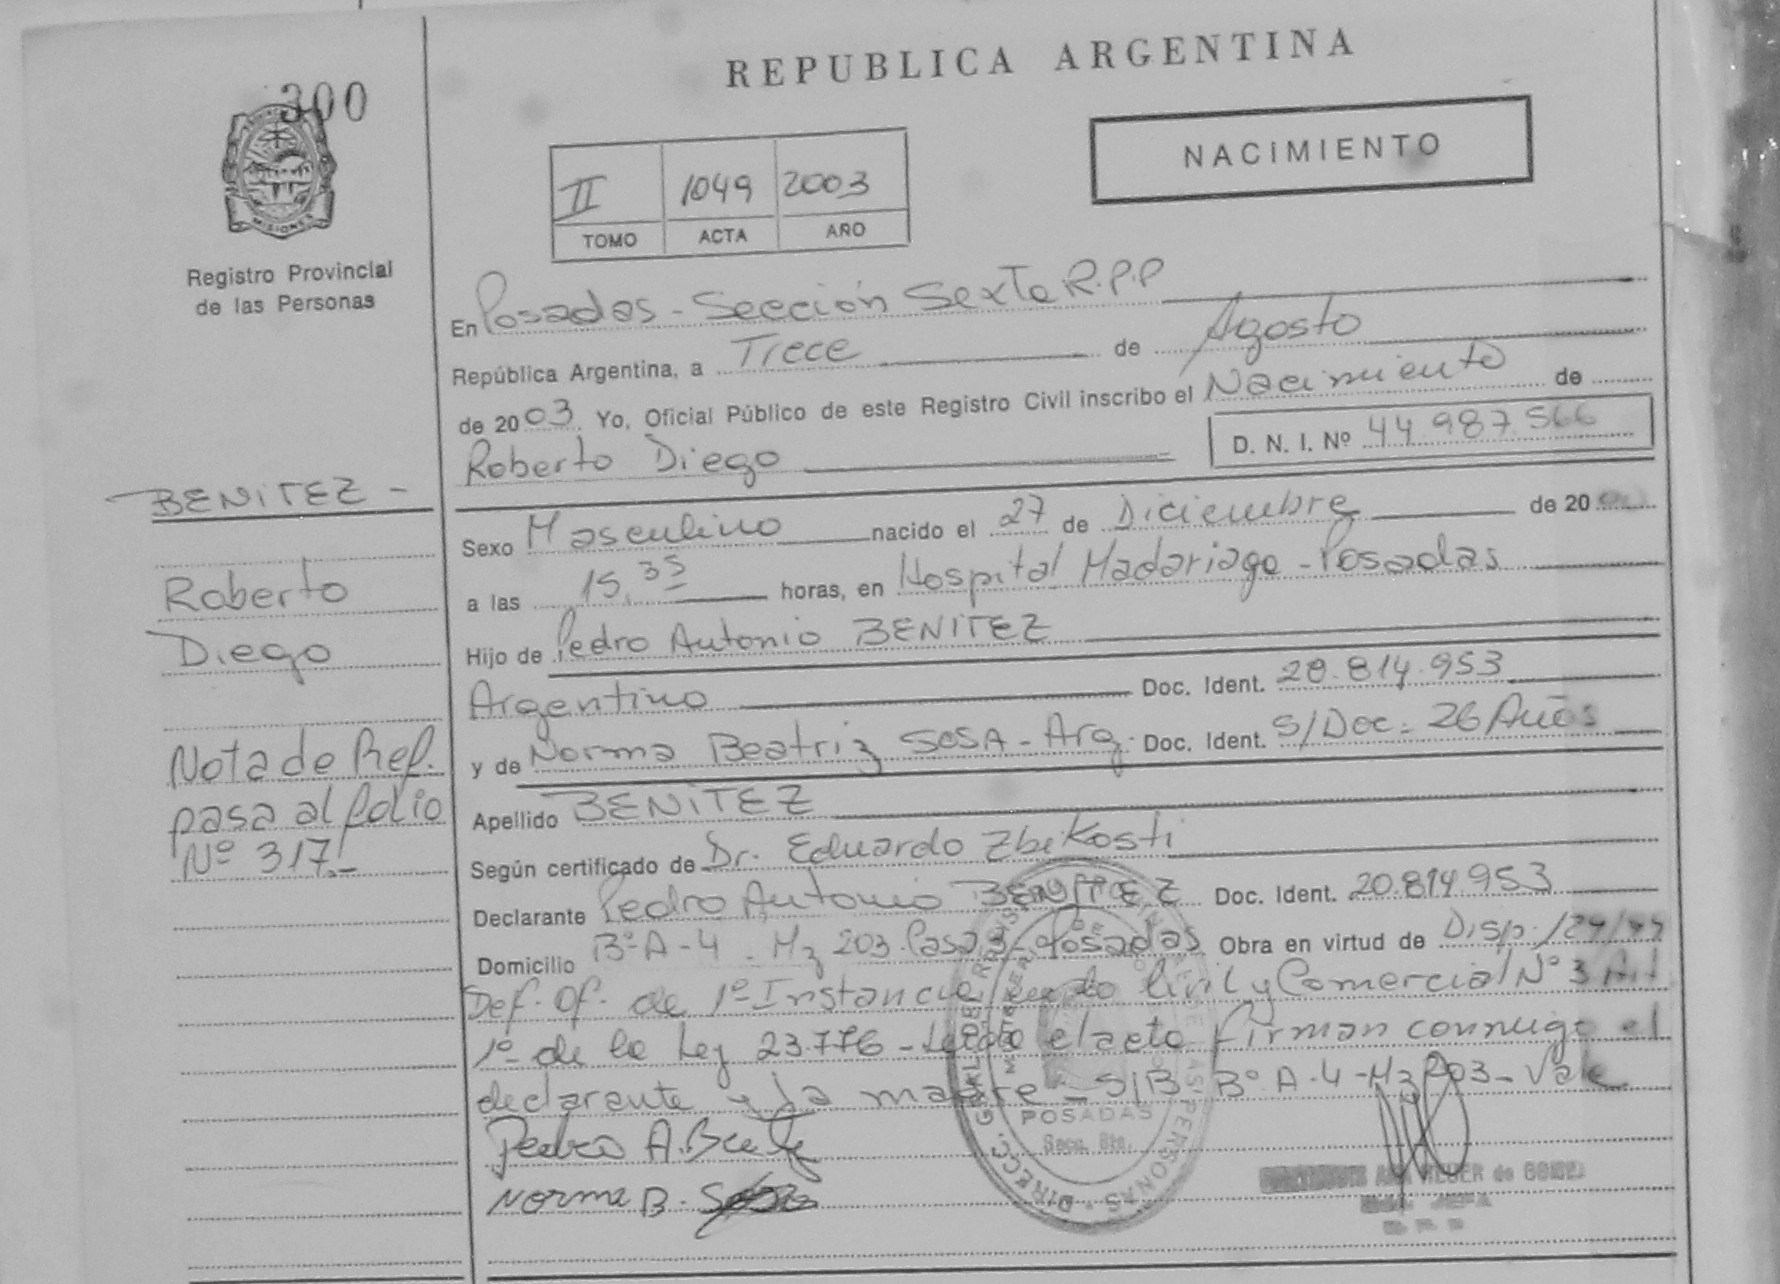 REPUBLICA ARGENTINA
300
NACIMIENTO
II 1049 2003
TOMO ACTA AÑO
MISIONES
Registro Provincial
de las Personas
En Posadas - Sección Sexta R.P.P
República Argentina, a Trece de Agosto
de 2003. Yo, Oficial Público de este Registro Civil inscribo el Nacimiento de
D. N. I. Nº 44.987.566
Roberto Diego
BENITEZ -
Roberto
Diego
Nota de Ref.
pasa al folio
Nº 317.-
Sexo Masculino nacido el 27 de Diciembre de 20
a las 15,35 horas, en Hospital Madariaga - Posadas
Hijo de Pedro Antonio BENITEZ
Argentino Doc. Ident. 20.814.953
y de Norma Beatriz SOSA - Arg. Doc. Ident. S/Doc - 26 Años
Apellido BENITEZ
Según certificado de Dr. Eduardo Zbikosti
Declarante Pedro Antonio BENITEZ Doc. Ident. 20.814.953
Domicilio Bº A-4 - Mz 203 Casa 3 - Posadas Obra en virtud de Disp.
Def. Of. de 1º Instancia Civil y Comercial Nº 3 Art
1º de la Ley 23.776 - el acto firman conmigo el
declarante y la madre - S/B Bº A-4-Mz 203 - Vale
Pedro A.
Norma B. Sosa
POSADAS
Secc. 6ta.